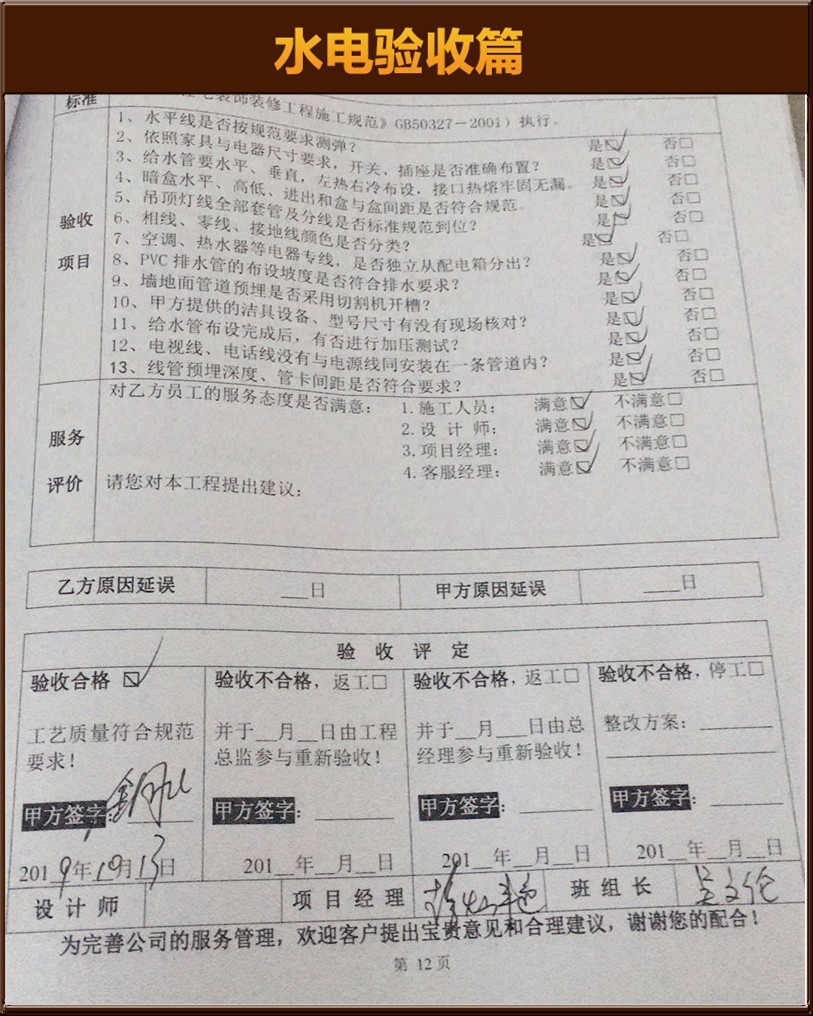 水电验收篇
标准 装饰装修工程施工规范》GB50327-2001）执行。
验收项目
1、水平线是否按规范要求测弹？ 是☑ 否□
2、依照家具与电器尺寸要求，开关、插座是否准确布置？ 是☑ 否□
3、给水管要水平、垂直，左热右冷布设，接口热熔牢固无漏。 是☑ 否□
4、暗盒水平、高低、进出和盒与盒间距是否符合规范。 是☑ 否□
5、吊顶灯线全部套管及分线是否标准规范到位？ 是☑ 否□
6、相线、零线、接地线颜色是否分类？ 是☑ 否□
7、空调、热水器等电器专线，是否独立从配电箱分出？ 是☑ 否□
8、PVC排水管的布设坡度是否符合排水要求？ 是☑ 否□
9、墙地面管道预埋是否采用切割机开槽？ 是☑ 否□
10、甲方提供的洁具设备、型号尺寸有没有现场核对？ 是☑ 否□
11、给水管布设完成后，有否进行加压测试？ 是☑ 否□
12、电视线、电话线没有与电源线同安装在一条管道内？ 是☑ 否□
13、线管预埋深度、管卡间距是否符合要求？ 是☑ 否□
服务评价
对乙方员工的服务态度是否满意： 1.施工人员： 满意☑ 不满意□
2.设计师： 满意☑ 不满意□
3.项目经理： 满意☑ 不满意□
4.客服经理： 满意☑ 不满意□
请您对本工程提出建议：
乙方原因延误 ___日 甲方原因延误 ___日
验收评定
验收合格 ☑ 验收不合格，返工□ 验收不合格，返工□ 验收不合格，停工□
工艺质量符合规范 并于__月__日由工程 并于__月___日由总 整改方案：______
要求！ 总监参与重新验收！ 经理参与重新验收！
甲方签字： 甲方签字：______ 甲方签字：______ 甲方签字：______
2019年10月13日 201__年__月__日 201__年__月__日 201__年__月__日
设计师 项目经理 班组长 吴文伦
为完善公司的服务管理，欢迎客户提出宝贵意见和合理建议，谢谢您的配合！
第 12 页